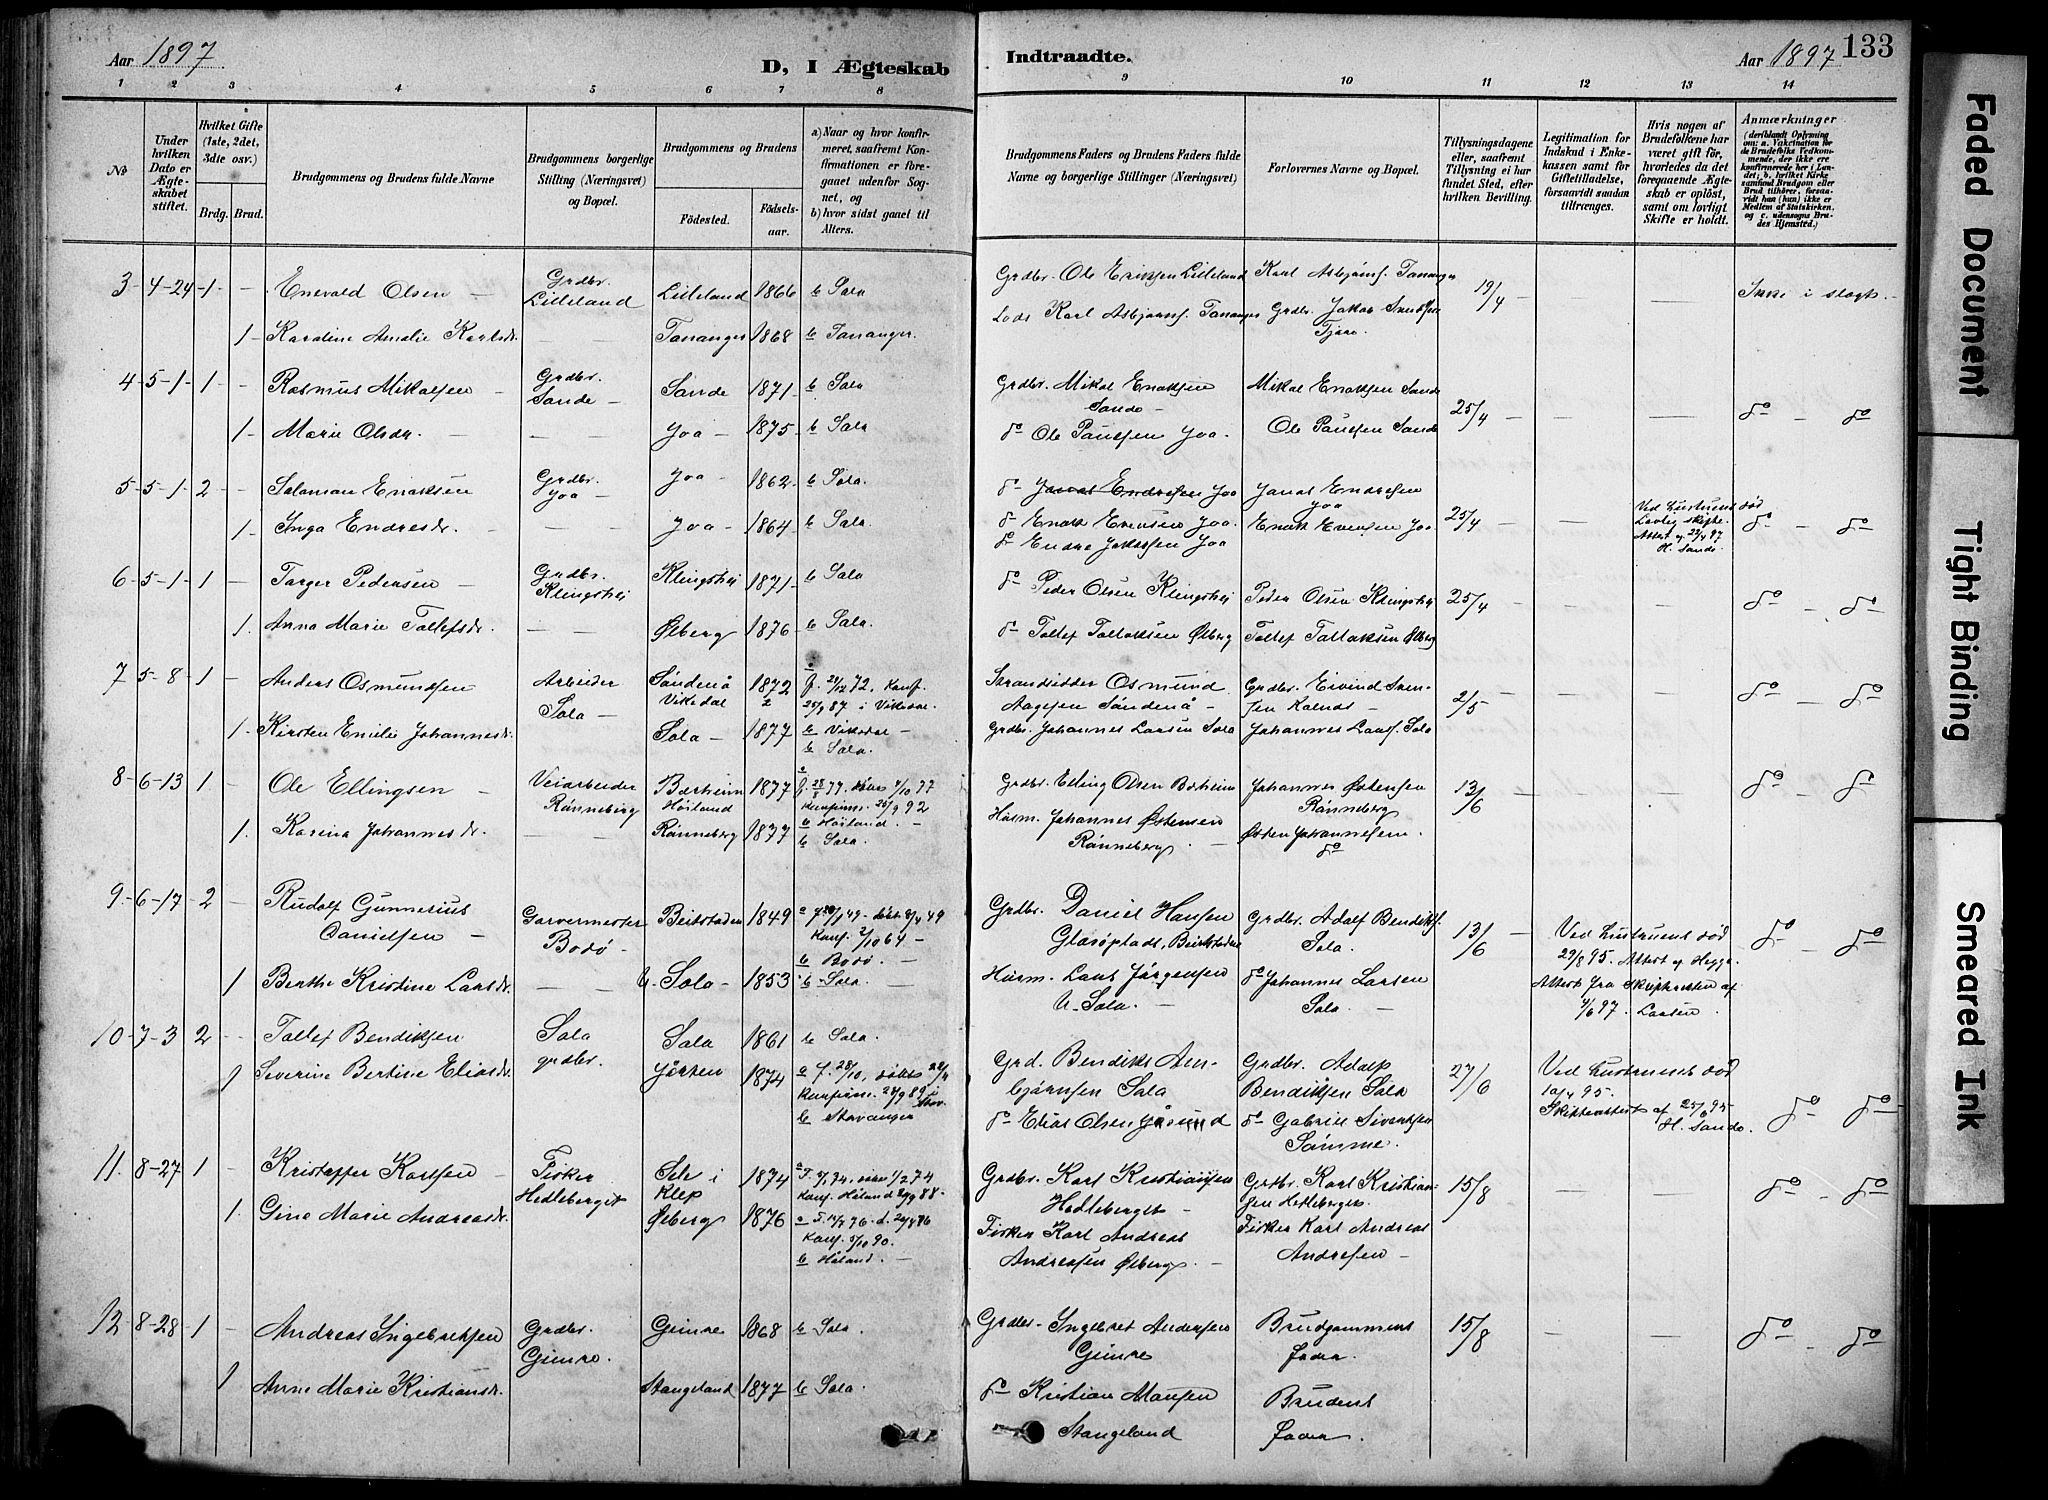 Aar 1897
D, I Ægteskab
Indtraadte.
Aar 1897
133
1 2 3 4 5 6 7 8 9 10 11 12 13 14
№
Under hvilken Dato er Ægteskabet stiftet.
Hvilket Gifte (1ste, 2det, 3die osv.)
Brdg. Brud.
Brudgommens og Brudens fulde Navne
Brudgommens borgerlige Stilling (Næringsvei) og Bopæl.
Brudgommens og Brudens
Fødested.
Fødselsaar.
a) Naar og hvor konfirmeret, saafremt Konfirmationen er foregaaet udenfor Sognet, og
b) hvor sidst gaaet til Alters.
Brudgommens Faders og Brudens Faders fulde Navne og borgerlige Stillinger (Næringsvei)
Forlovernes Navne og Bopæl.
Tillysningsdagene eller, saafremt Tillysning ei har fundet Sted, efter hvilken Bevilling.
Legitimation for Indskud i Enkekassen samt for Giftetilladelse, forsaavidt saadan tiltrænges.
Hvis nogen af Brudefolkene har været gift før, hvorledes da det foregaaende Ægteskab er opløst, samt om lovligt Skifte er holdt.
Anmærkninger
(deriblandt Oplysning om: a. Vaccination for de Brudefolks Vedkommende, der ikke ere konfirmerede her i Landet; b. hvilket Kirkesamfund Brudgom eller Brud tilhører, forsaavidt han (hun) ikke er Medlem af Statskirken, og c. udensogns Brudes Hjemsted.)
3 - 4-24 - 1 - Enevald Olsen - Grdbr. Lilleland Lilleland 1866 b Sola Grdbr. Ole Eriksen Lilleland Karl Asbjørns. Tananger 19/4 - - - Ikke i slægt. -
1 - Karoline Amalie Karlsdr. - - Tananger 1868 b Tananger. Lods Karl Asbjørns. Tananger Grdbr. Jakob Svendsen Tjora
4 - 5-1 - 1 - Rasmus Mikalsen - Grdbr. Sande - Sande 1871 b Sola Grdbr. Mikal Enoksen Sande - Mikal Enoksen Sande 25/4 - - - do - do
1 - Marie Olsdr. - - - Joa - 1875 b Sola do Ole Paulsen Joa - Ole Paulsen Sande
5 - 5-1 - 2 - Salamon Enoksen Grdbr. Joa - Joa - 1862 b Sola. do Jonas Endresen Joa Jonas Endresen Joa 25/4 - - Ved hustruens død
1 - Inga Endresdr. - - Joa - 1864 b Sola. do Enok Evensen Joa. Enok Evensen Joa Lovlig skifte. do - do
do Endre Jakobsen Joa Attest af 22/4 97 H. Sande.
6 - 5-1 - 1 - Torger Pedersen - Grdbr. Klingshei Klingshei 1871 b Sola do Peder Olsen Klingshei Peder Olsen Klingshei 25/4 - - - do - do
1. Anna Marie Tollefsdr. - - Ølberg 1876 b Sola. do Tollef Tollaksen Ølberg Tollef Tollaksen Ølberg
7 5-8 - 1 - Anders Osmundsen Arbeider Sola - Søndenå Vikedal 1872 a f. 21/12 72, Konf. 25/9 87 i Vikedal. b Vikedal - Strandsidder Osmund Aagesen Søndenå - Grdbr. Eivind Svensen Kolnes - 2/5 - - - do - do
1. Kirsten Emilie Johannesdr. Sola - 1877 b Sola. Grdbr. Johannes Larsen Sola Johannes Lars. Sola
8 - 6-13 1 - Ole Ellingsen - Veiarbeider Rønneberg Bærheim Høiland 1877 Konfirm. 26/9 92 b Høiland. - Grdbr. Elling Olsen Bærheim Johannes Østensen Rønneberg 13/6 - - - do - do
1. Karina Johannesdr. - - Rønneberg 1877 b Sola. Husm. Johannes Østensen Rønneberg. - Østen Johannesen. do
9 - 6-17 - 2 - Rudolf Gunnerius Danielsen - Garvermester Bodø - Beitstaden 1849 Konf. 2/10 64 - b Bodø. - Grdbr. Daniel Hansen Beitstaden Grdbr. Adolf Bendiks. Sola. 13/6 - Ved hustruens død 29/8 95. Attest af Hegge. do - do
1 Berthe Kristine Larsdr. - - U. Sola - 1853 b Sola. - Husm. Lars Jørgensen U. Sola. - do Johannes Larsen Sola. - Attest fra Skifteretten af 4/6 97. Larsen
10 - 7-3 2 - Tollef Bendiksen Sola grdbr. Sola 1861 b Sola. Grd. Bendik Asbjørnsen Sola Grdbr. Adolf Bendiksen Sola 27/6 Ved hustruens død 10/4 95.
1 Severine Bertine Eliasdr. 1874 Konfirm. 29/9 89 Stav. b Stavanger do Elias Olsen Jåsund do Gabriel Sivertsen Sømme. Skifteattest af 25/6 95 H. Sande. do - do
11. 8-27 1 - Kristoffer Karlsen - Fisker Hedleberget Sele i Klep 1874 Konf. Høiland 29/9 88. Grdbr. Karl Kristiansen Hedleberget - Grdbr. Karl Kristiansen Hedleberget. 15/8 - - - do - do
1. Gine Marie Andreasdr. Ølberg 1876 Konf. 5/10 90. b Høiland. - Fisker Karl Andreas Andreassen Ølberg. - Fisker Karl Andreas Andresen -
12 8-28 1 - Andreas Ingebretsen Grdbr. Gimre. Gimre 1868 b Sola Grdbr. Ingebret Andersen Gimre Brudgommens fader. 15/8 - - - do - do
1 Anne Marie Kristiansdr. Stangeland 1877 b Sola. do Kristian Monsen Stangeland Brudens fader.
Faded Document
Tight Binding
Smeared Ink